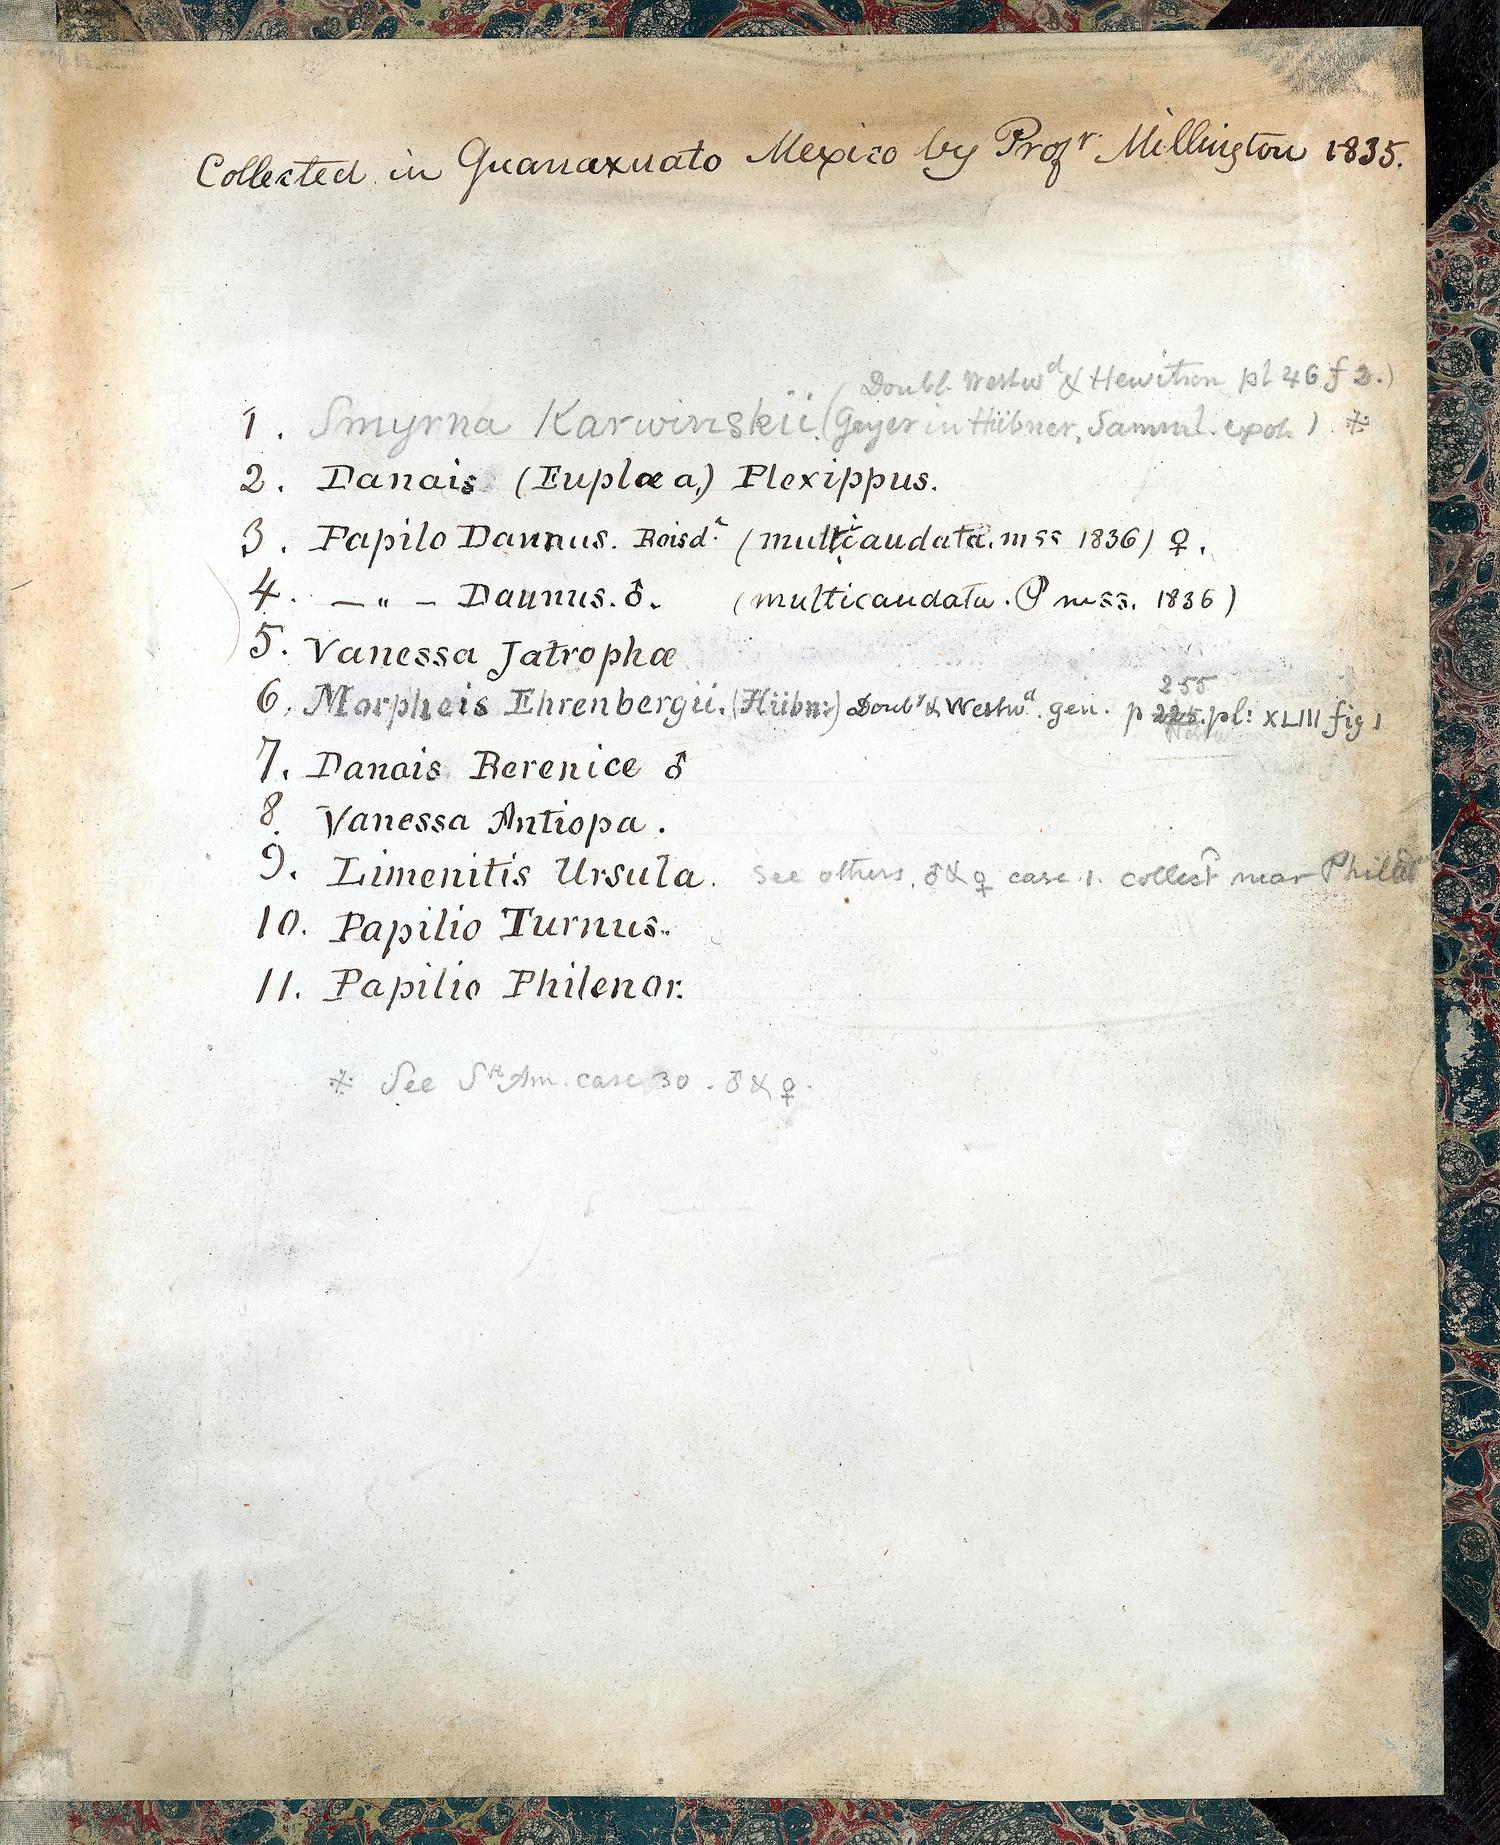 Collected in Guanaxuato Mexico by Profr Millington 1835.
(Doubl. Westwd & Hewitson pl 46 f 2.)
1. Smyrna Karwinskii (Geyer in Hübner, Samml. exot.) ※
2. Danais (Euplœa,) Plexippus.
3. Papilo Daunus. Boisdl. (multicaudata. mss 1836) ♀.
4. — „ — Daunus. ♂. (multicaudata. P mss. 1836)
5. Vanessa Jatrophæ
6. Morpheis Ehrenbergii. (Hübnr) Douby & Westwd. gen. p 225. 255 pl: XLIII fig 1
7. Danais Berenice ♂
8. Vanessa Antiopa.
9. Limenitis Ursula. See others, ♂ & ♀ case 1. collect near Philada
10. Papilio Turnus.
11. Papilio Philenor.
※ See Sth Am. case 30. ♂ & ♀.